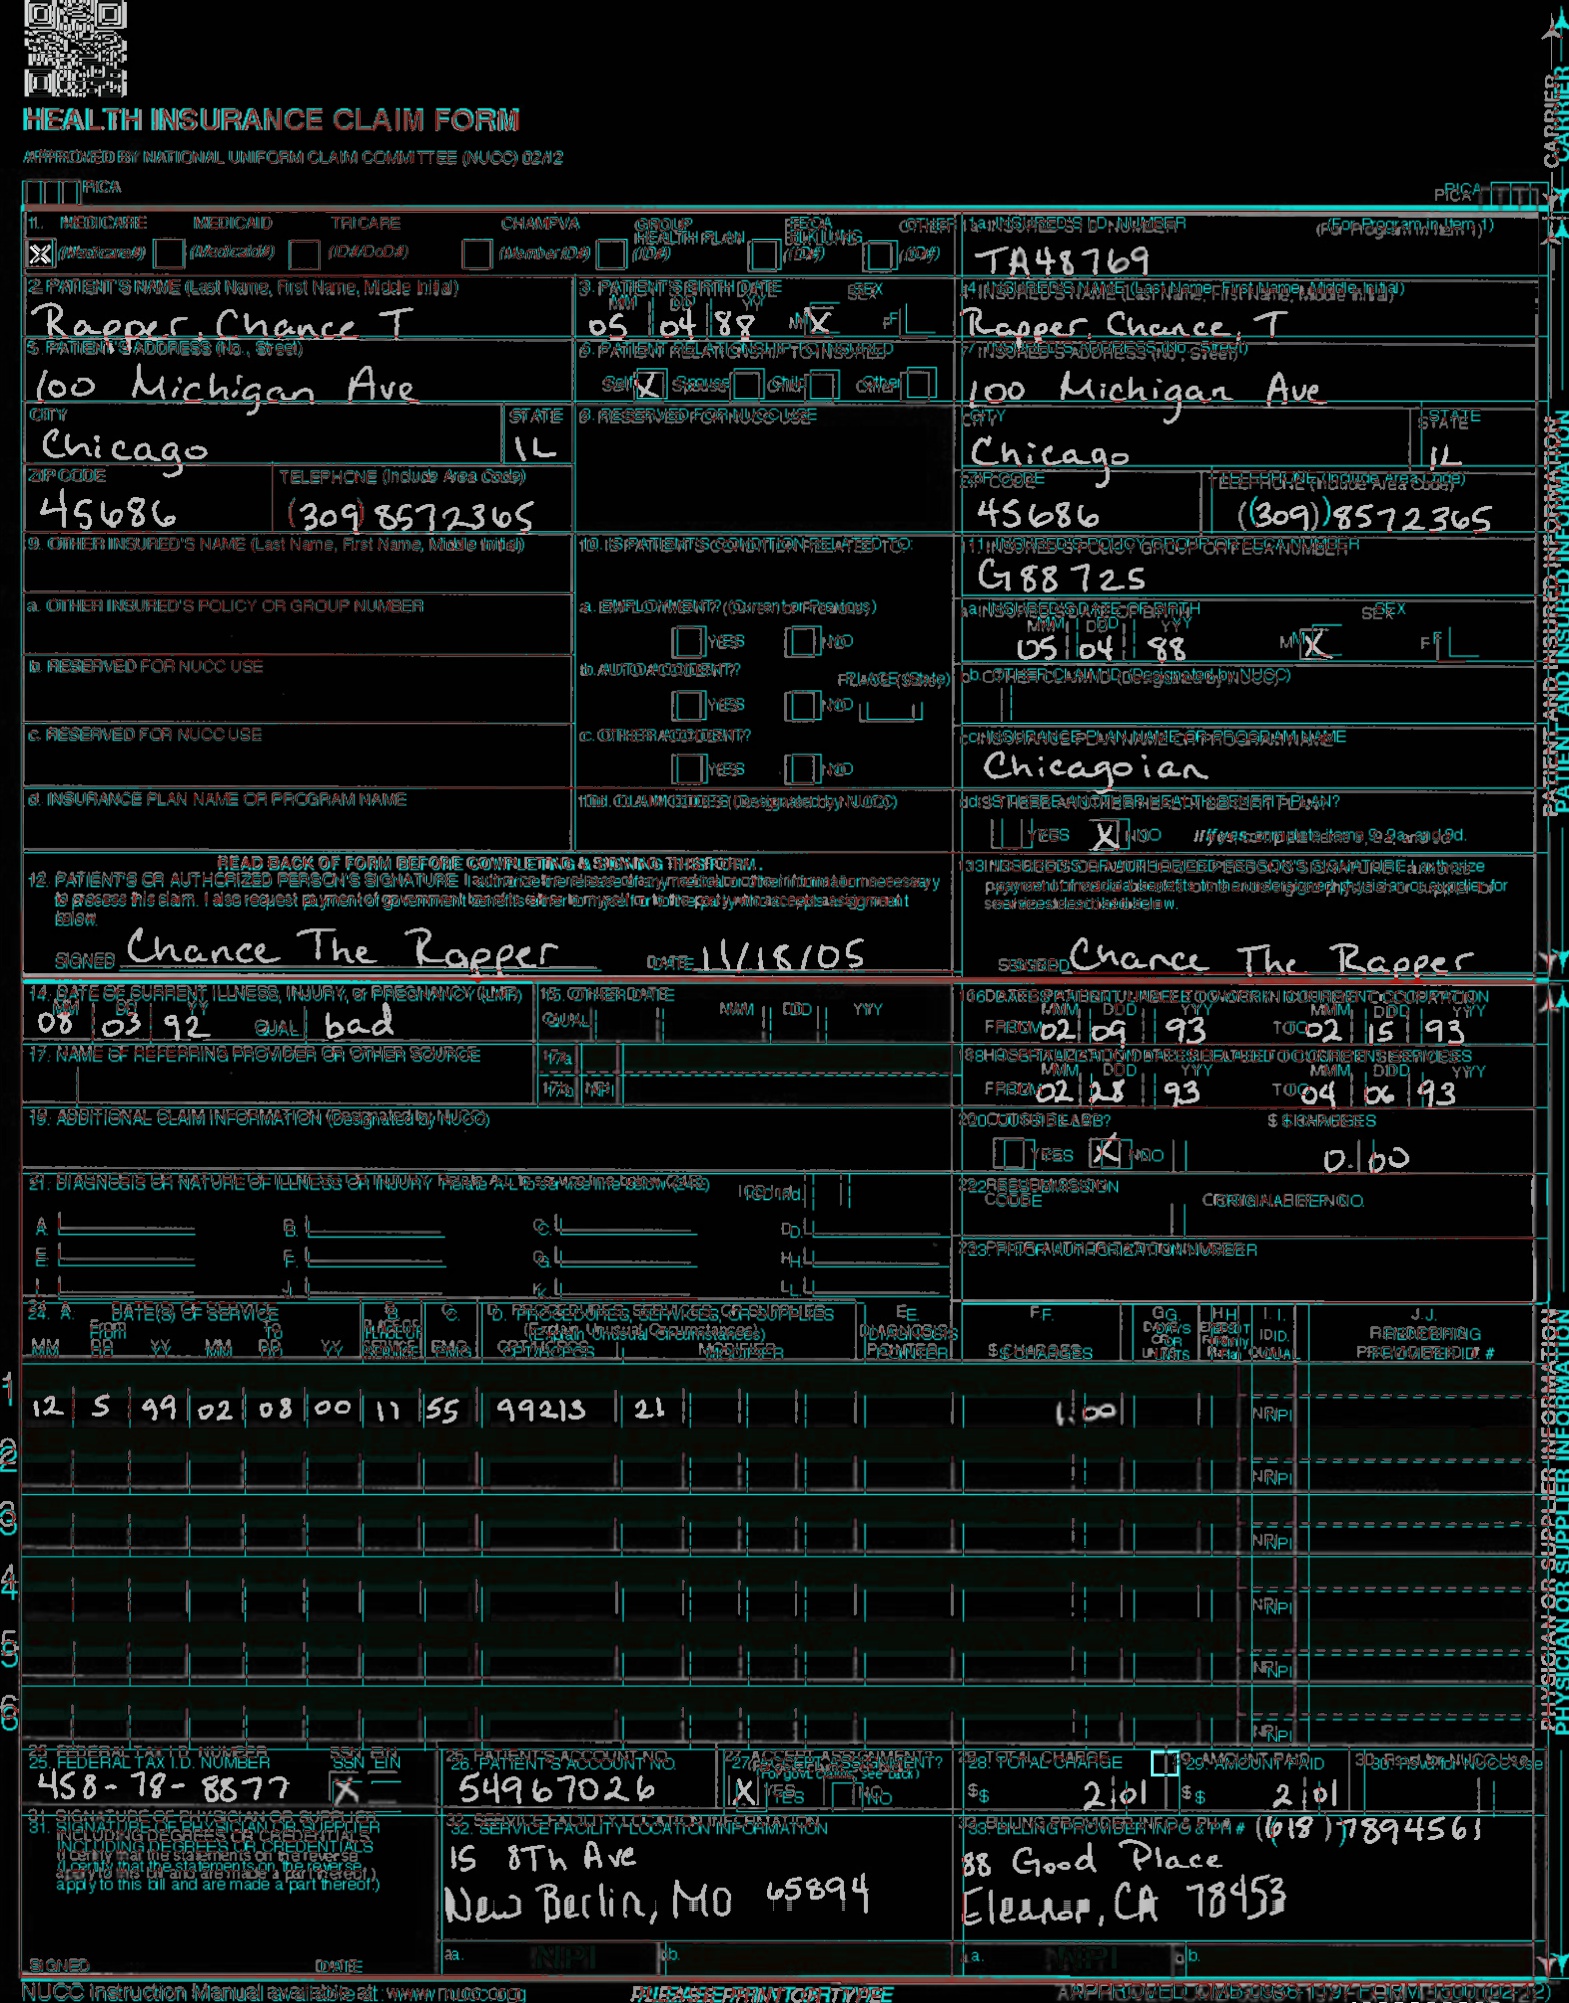 HEALTH INSURANCE CLAIM FORM
APPROVED BY NATIONAL UNIFORM CLAIM COMMITTEE (NUCC) 02/12
PICA
PICA
CARRIER
1. MEDICARE MEDICAID TRICARE CHAMPVA GROUP HEALTH PLAN FECA BLK LUNG OTHER
(Medicare#) (Medicaid#) (ID#/DoD#) (Member ID#) (ID#) (ID#) (ID#)
1a. INSURED'S I.D. NUMBER (For Program in Item 1)
TA48769
2. PATIENT'S NAME (Last Name, First Name, Middle Initial)
Rapper, Chance T
3. PATIENT'S BIRTH DATE SEX
MM DD YY
05 04 88 M X F
4. INSURED'S NAME (Last Name, First Name, Middle Initial)
Rapper, Chance, T
5. PATIENT'S ADDRESS (No., Street)
100 Michigan Ave
6. PATIENT RELATIONSHIP TO INSURED
Self X Spouse Child Other
7. INSURED'S ADDRESS (No., Street)
100 Michigan Ave
CITY STATE
Chicago IL
8. RESERVED FOR NUCC USE
CITY STATE
Chicago IL
ZIP CODE TELEPHONE (Include Area Code)
45686 (309) 8572365
ZIP CODE TELEPHONE (Include Area Code)
45686 (309) 8572365
9. OTHER INSURED'S NAME (Last Name, First Name, Middle Initial)
10. IS PATIENT'S CONDITION RELATED TO:
11. INSURED'S POLICY GROUP OR FECA NUMBER
G88725
a. OTHER INSURED'S POLICY OR GROUP NUMBER
a. EMPLOYMENT? (Current or Previous)
YES NO
a. INSURED'S DATE OF BIRTH SEX
MM DD YY
05 04 88 M X F
b. RESERVED FOR NUCC USE
b. AUTO ACCIDENT? PLACE (State)
YES NO
b. OTHER CLAIM ID (Designated by NUCC)
c. RESERVED FOR NUCC USE
c. OTHER ACCIDENT?
YES NO
c. INSURANCE PLAN NAME OR PROGRAM NAME
Chicagoian
d. INSURANCE PLAN NAME OR PROGRAM NAME
10d. CLAIM CODES (Designated by NUCC)
d. IS THERE ANOTHER HEALTH BENEFIT PLAN?
YES X NO If yes, complete items 9, 9a, and 9d.
READ BACK OF FORM BEFORE COMPLETING & SIGNING THIS FORM.
12. PATIENT'S OR AUTHORIZED PERSON'S SIGNATURE I authorize the release of any medical or other information necessary
to process this claim. I also request payment of government benefits either to myself or to the party who accepts assignment
below.
SIGNED Chance The Rapper DATE 11/18/05
13. INSURED'S OR AUTHORIZED PERSON'S SIGNATURE I authorize
payment of medical benefits to the undersigned physician or supplier for
services described below.
SIGNED Chance The Rapper
PATIENT AND INSURED INFORMATION
14. DATE OF CURRENT ILLNESS, INJURY, or PREGNANCY (LMP)
MM DD YY
08 03 92 QUAL. bad
15. OTHER DATE
QUAL. MM DD YY
16. DATES PATIENT UNABLE TO WORK IN CURRENT OCCUPATION
MM DD YY MM DD YY
FROM 02 09 93 TO 02 15 93
17. NAME OF REFERRING PROVIDER OR OTHER SOURCE
17a.
17b. NPI
18. HOSPITALIZATION DATES RELATED TO CURRENT SERVICES
MM DD YY MM DD YY
FROM 02 28 93 TO 04 06 93
19. ADDITIONAL CLAIM INFORMATION (Designated by NUCC)
20. OUTSIDE LAB? $ CHARGES
YES X NO 0.00
21. DIAGNOSIS OR NATURE OF ILLNESS OR INJURY Relate A-L to service line below (24E) ICD Ind.
A. B. C. D.
E. F. G. H.
I. J. K. L.
22. RESUBMISSION CODE ORIGINAL REF. NO.
23. PRIOR AUTHORIZATION NUMBER
24. A. DATE(S) OF SERVICE B. C. D. PROCEDURES, SERVICES, OR SUPPLIES E. F. G. H. I. J.
From To PLACE OF (Explain Unusual Circumstances) DIAGNOSIS DAYS OR EPSDT Family ID. RENDERING
MM DD YY MM DD YY SERVICE EMG CPT/HCPCS MODIFIER POINTER $ CHARGES UNITS Plan QUAL. PROVIDER ID. #
1 12 5 99 02 08 00 11 55 99213 21 1.00 NPI
2 NPI
3 NPI
4 NPI
5 NPI
6 NPI
PHYSICIAN OR SUPPLIER INFORMATION
25. FEDERAL TAX I.D. NUMBER SSN EIN
458-78-8877 X
26. PATIENT'S ACCOUNT NO.
54967026
27. ACCEPT ASSIGNMENT?
(For govt. claims, see back)
X YES NO
28. TOTAL CHARGE
$ 2 01
29. AMOUNT PAID
$ 2 01
30. Rsvd for NUCC Use
31. SIGNATURE OF PHYSICIAN OR SUPPLIER
INCLUDING DEGREES OR CREDENTIALS
(I certify that the statements on the reverse
apply to this bill and are made a part thereof.)
SIGNED DATE
32. SERVICE FACILITY LOCATION INFORMATION
15 8Th Ave
New Berlin, MO 65894
a. NPI b.
33. BILLING PROVIDER INFO & PH # (618) 7894561
88 Good Place
Eleanor, CA 78453
a. NPI b.
NUCC Instruction Manual available at: www.nucc.org
PLEASE PRINT OR TYPE